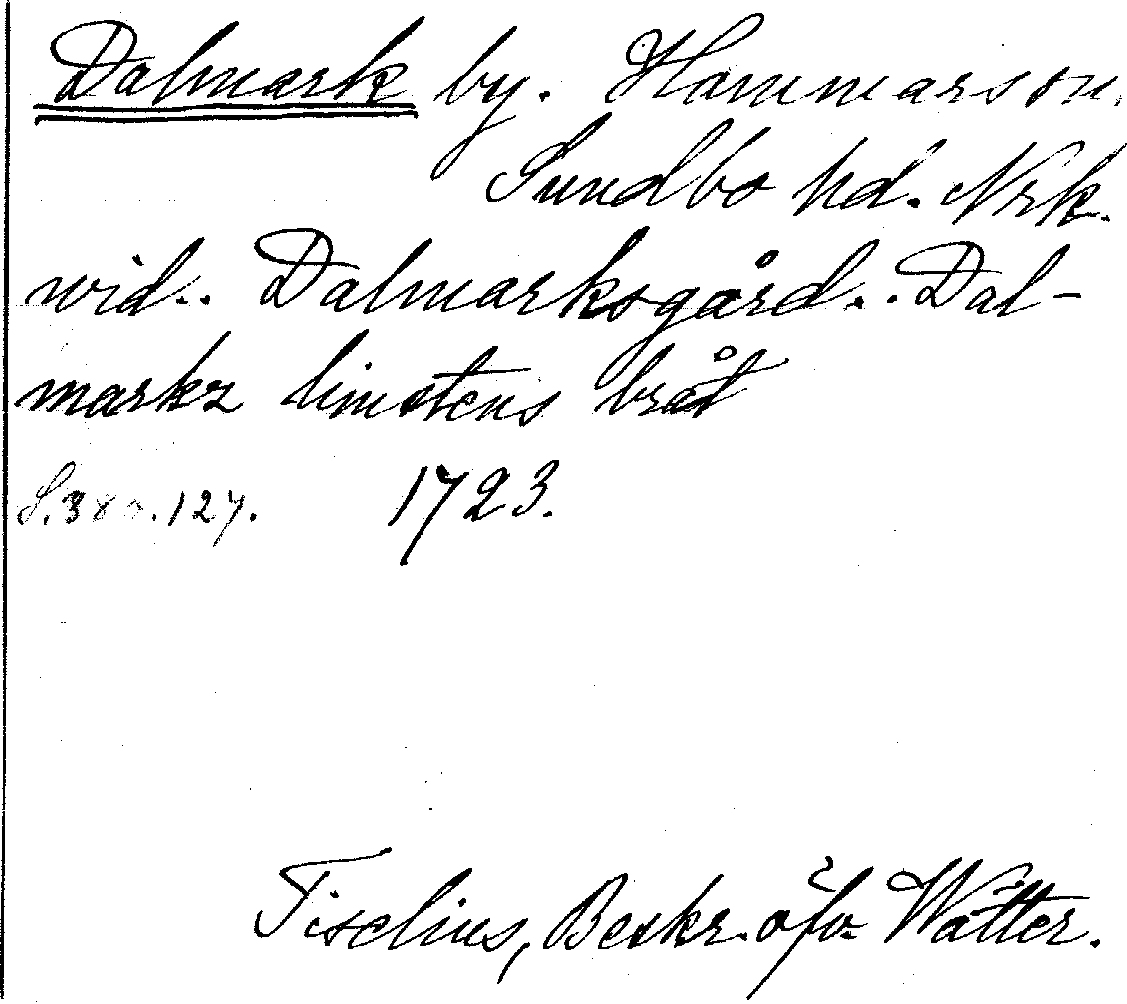 Dalmark by. Hammarson.
Sundbo hd. Nrk.
wid.. Dalmarksgård.. Dal-
markz limstens bråt
S. 380. 127. 1723.
Tiselius, Beskr. öfv Wätter.